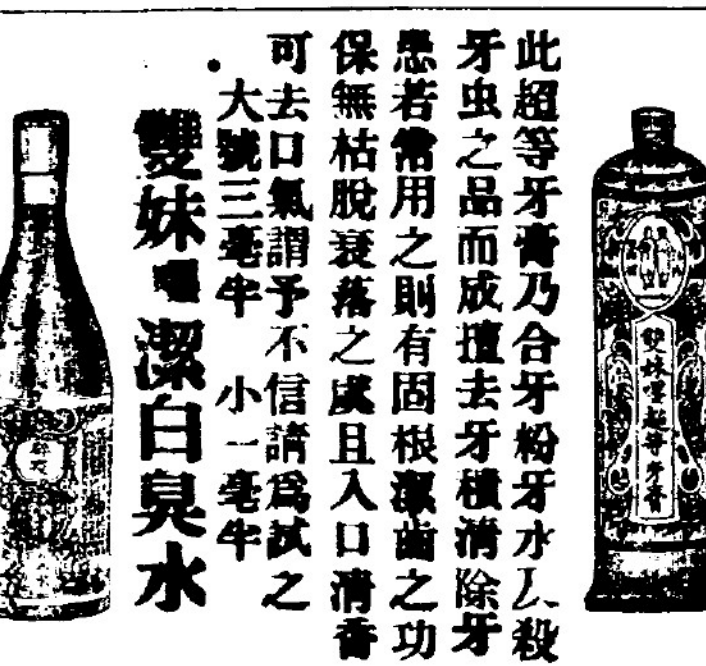 雙妹嚜超等牙膏
此超等牙膏乃合牙粉牙水及殺
牙虫之品而成擅去牙積清除牙
患若常用之則有固根潔齒之功
保無枯脫衰落之虞且入口清香
可去口氣謂予不信請爲試之
大號三毫半 小一毫半
雙妹嚜潔白臭水